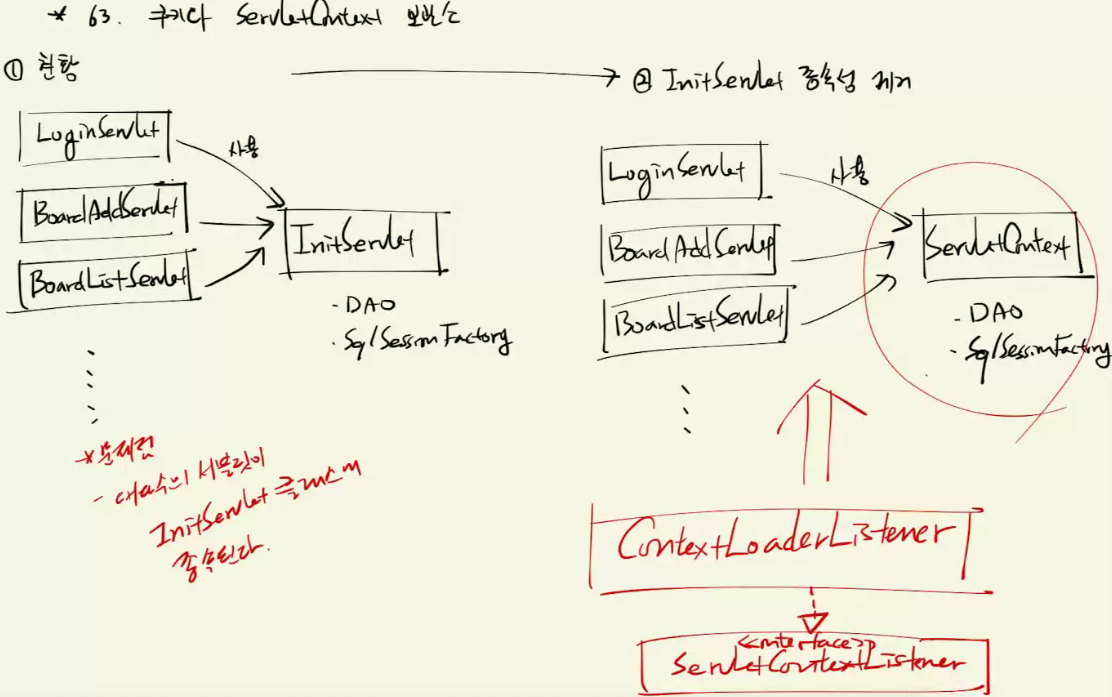 * 63. 쿠키와 ServletContext 보관소
① 현황
② InitServlet 종속성 제거
LoginServlet
사용
BoardAddServlet
BoardListServlet
InitServlet
- DAO
- SqlSessionFactory
* 문제점
- 대다수의 서블릿이
InitServlet 클래스에
종속된다.
LoginServlet
사용
BoardAddServlet
BoardListServlet
ServletContext
- DAO
- SqlSessionFactory
ContextLoaderListener
<<interface>>
ServletContextListener